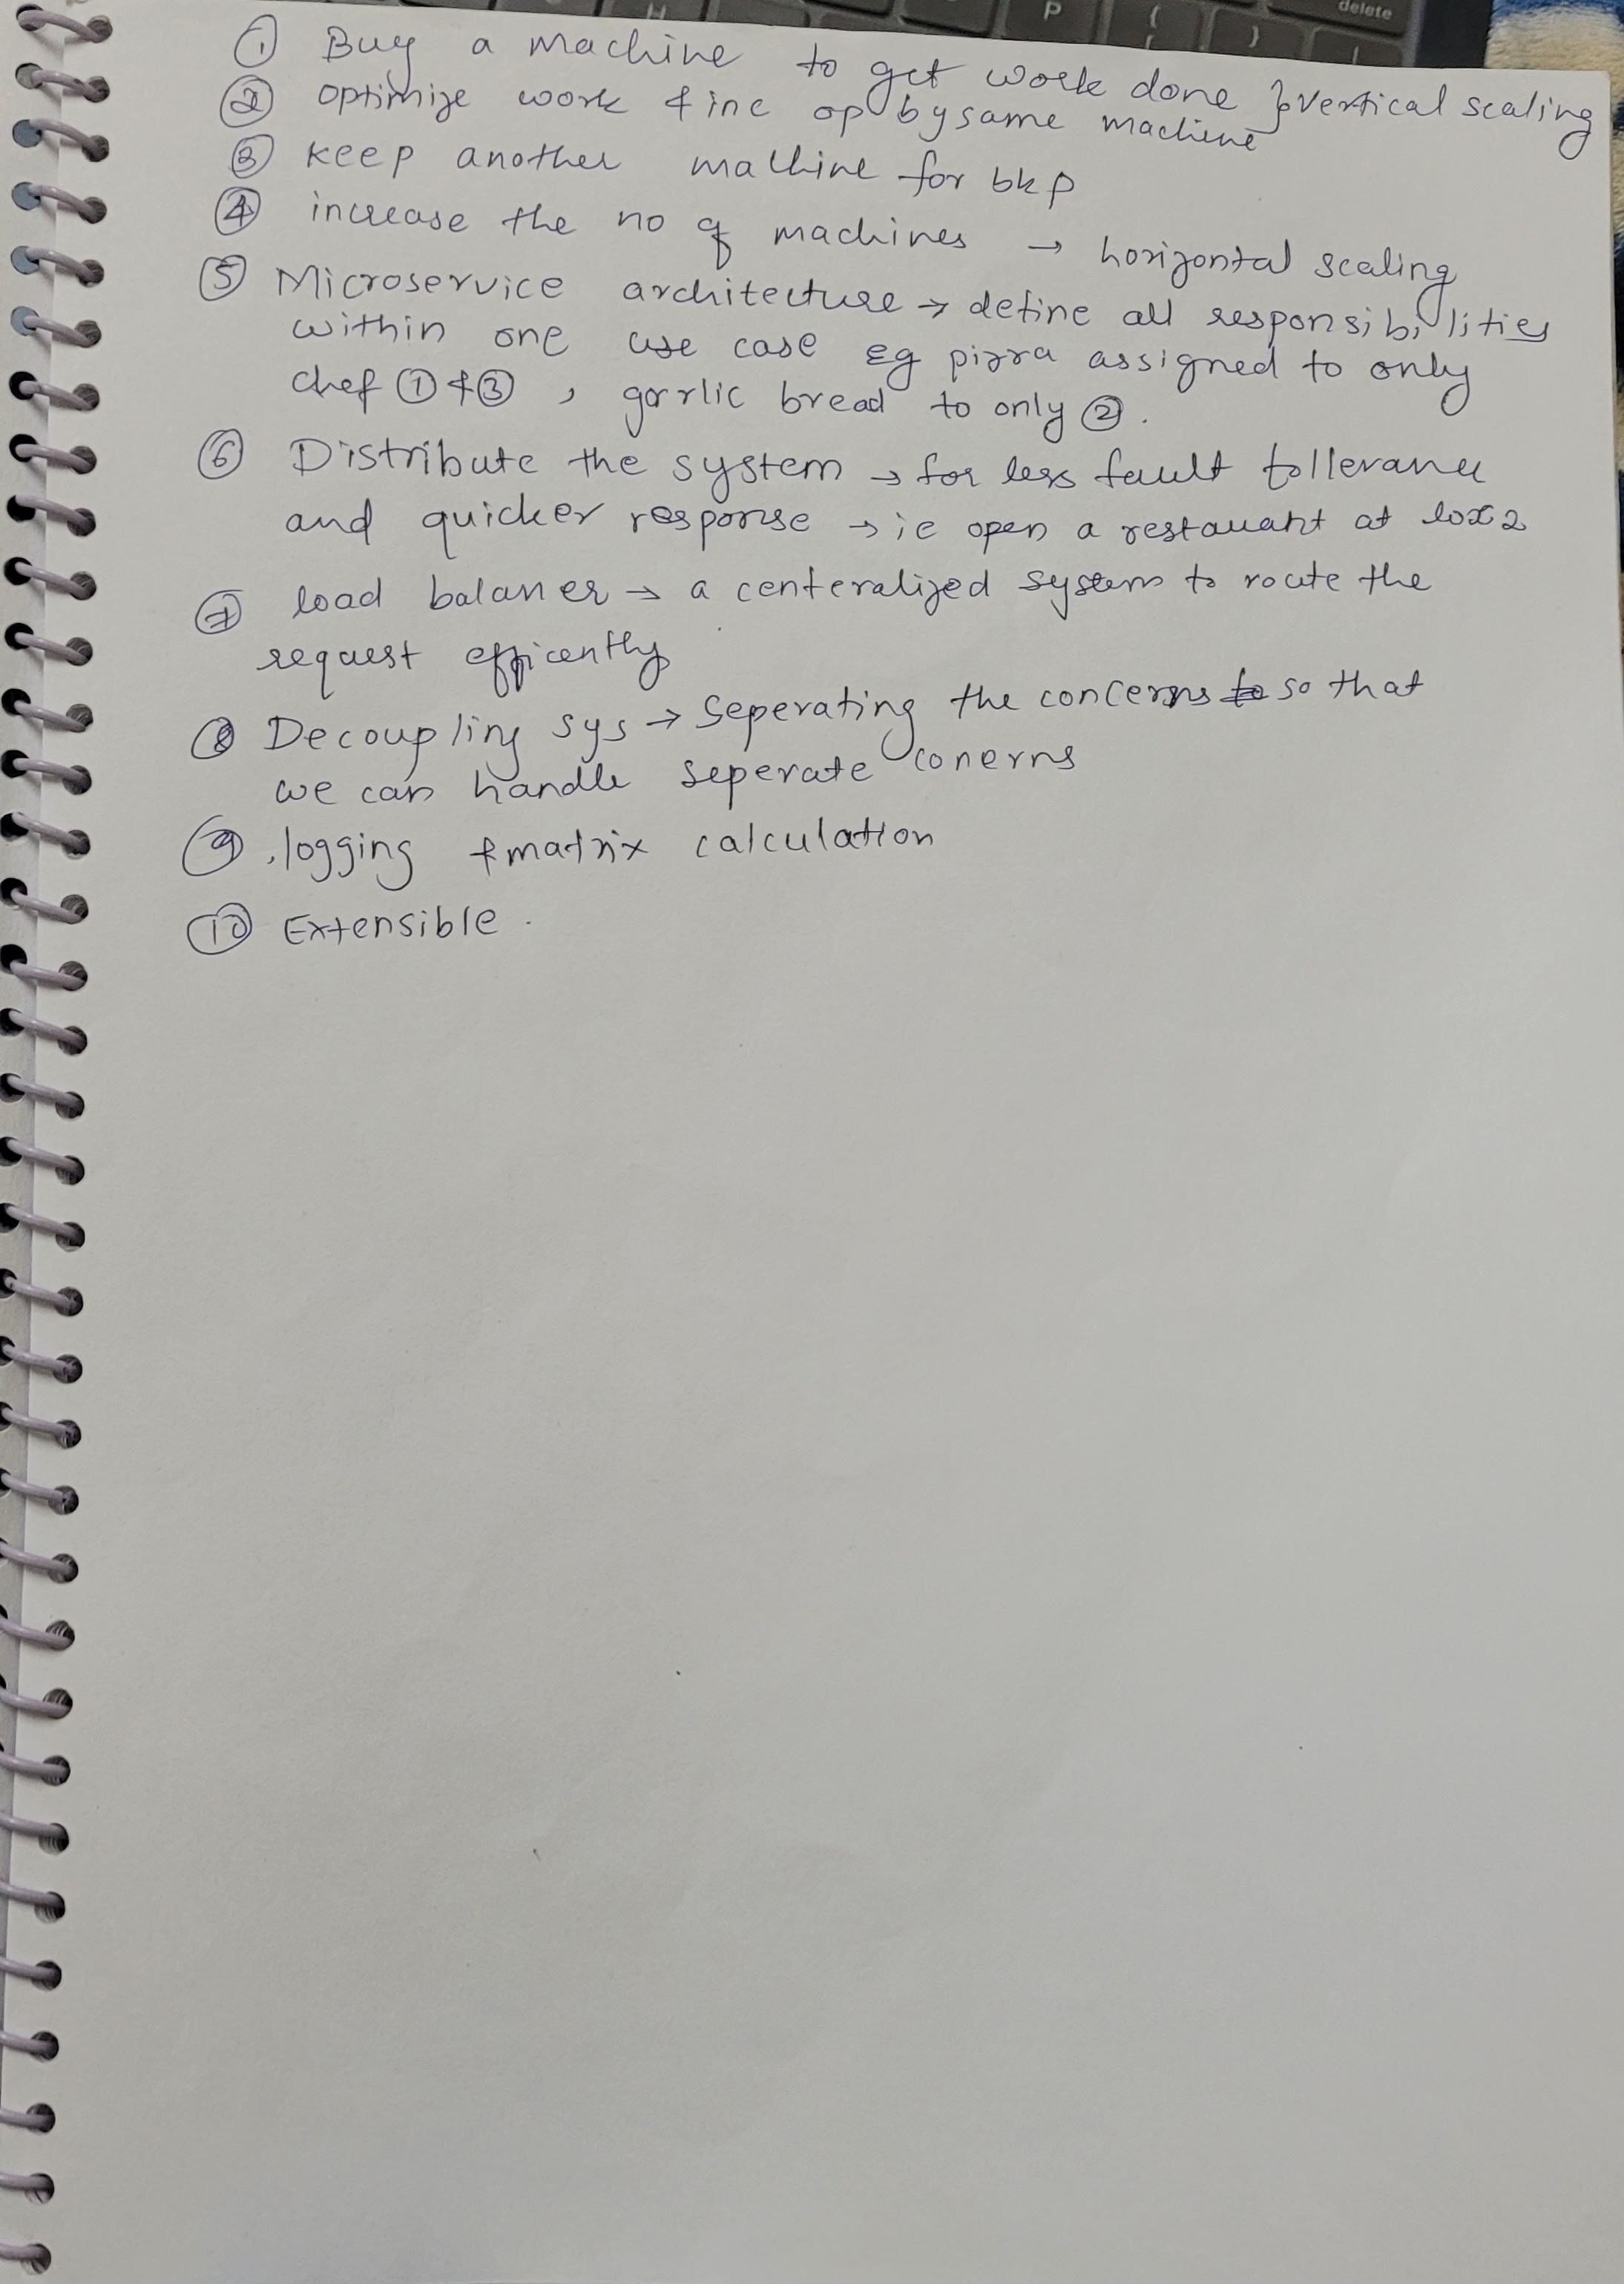 P
delete
① Buy a machine to get work done } vertical scaling
② optimize work & inc op by same machine
③ keep another machine for bkp
④ increase the no of machines → horizontal scaling
⑤ Microservice architecture → define all responsibilities
within one use case Eg pizza assigned to only
chef ① & ③ , garlic bread to only ② .
⑥ Distribute the system → for less fault tollerance
and quicker response → ie open a restauant at loc 2
⑦ load balancer → a centeralized system to route the
request efficently
⑧ Decoupling sys → Seperating the concerns to so that
we can handle seperate conerns
⑨ logging & matrix calculation
⑩ Extensible .